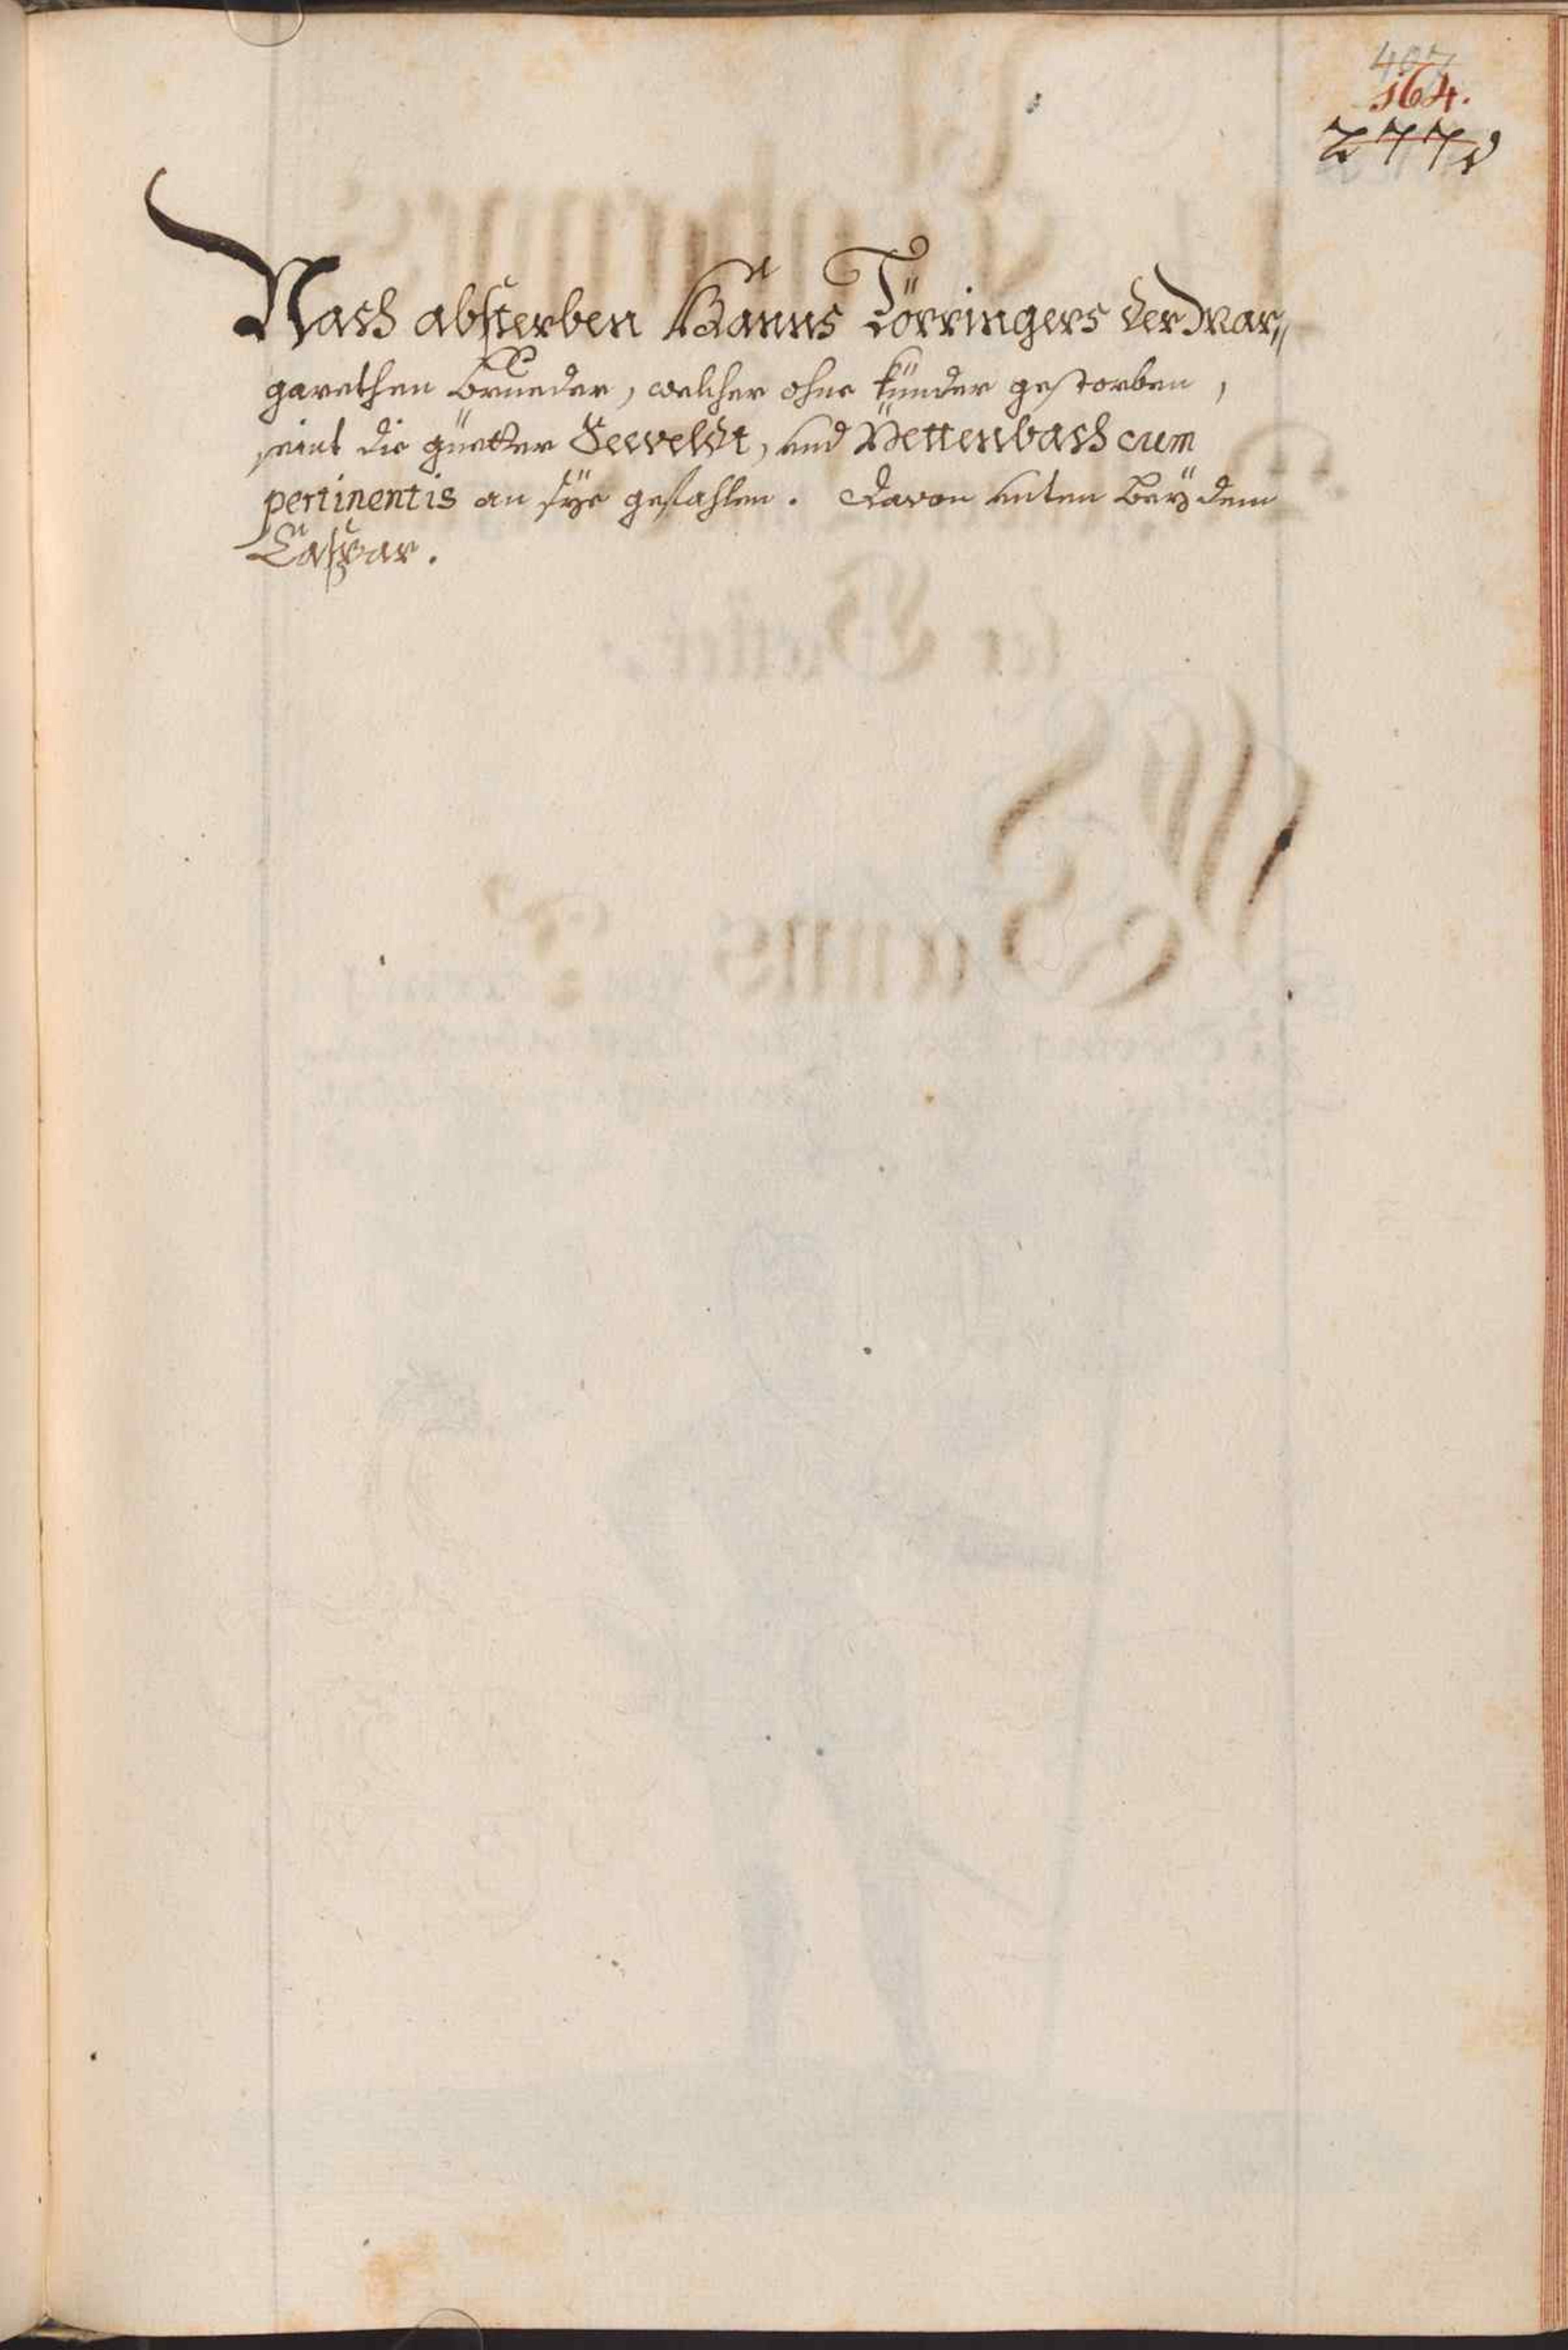 407
164.
277
Nach absterben Hänns Törringers der Mar„
garethen Brueder, welcher ohne künder gestorben,
seint die güetter Seeveldt, und Pettenbach cum
pertinentis an sye gefahlen. Davon unten bey dem
Caspar.